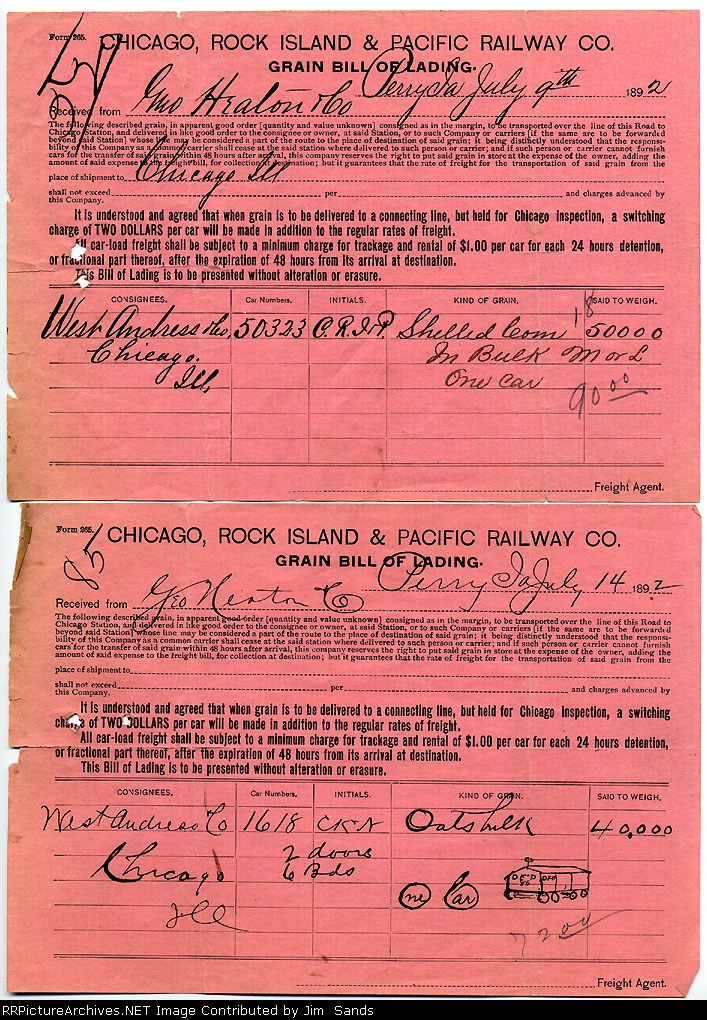 Form 265.
CHICAGO, ROCK ISLAND & PACIFIC RAILWAY CO.
GRAIN BILL OF LADING.
Perry Ia July 9th 1892
Received from Geo Heaton & Co
The following described grain, in apparent good order [quantity and value unknown] consigned as in the margin, to be transported over the line of this Road to
Chicago Station, and delivered in like good order to the consignee or owner, at said Station, or to such Company or carriers [if the same are to be forwarded
beyond said Station] whose line may be considered a part of the route to the place of destination of said grain; it being distinctly understood that the responsi-
bility of this Company as a common carrier shall cease at the said station where delivered to such person or carrier; and if such person or carrier cannot furnish
cars for the transfer of said grain within 48 hours after arrival, this company reserves the right to put said grain in store at the expense of the owner, adding the
amount of said expense to the freight bill, for collection at destination; but it guarantees that the rate of freight for the transportation of said grain from the
place of shipment to Chicago Ill
shall not exceed per and charges advanced by
this Company.
It is understood and agreed that when grain is to be delivered to a connecting line, but held for Chicago inspection, a switching
charge of TWO DOLLARS per car will be made in addition to the regular rates of freight.
All car-load freight shall be subject to a minimum charge for trackage and rental of $1.00 per car for each 24 hours detention,
or fractional part thereof, after the expiration of 48 hours from its arrival at destination.
This Bill of Lading is to be presented without alteration or erasure.
CONSIGNEES. Car Numbers. INITIALS. KIND OF GRAIN. SAID TO WEIGH.
18
West Andress & Co, 50323 C.R.I&P. Shelled Corn 50000
Chicago. In Bulk M or L
Ills One Car 90.00
Freight Agent.
Form 265.
85
CHICAGO, ROCK ISLAND & PACIFIC RAILWAY CO.
GRAIN BILL OF LADING.
Perry Ia July 14 1892
Received from Geo Heaton Co
The following described grain, in apparent good order [quantity and value unknown] consigned as in the margin, to be transported over the line of this Road to
Chicago Station, and delivered in like good order to the consignee or owner, at said Station, or to such Company or carriers [if the same are to be forwarded
beyond said Station] whose line may be considered a part of the route to the place of destination of said grain; it being distinctly understood that the respons-
bility of this Company as a common carrier shall cease at the said station where delivered to such person or carrier; and if such person or carrier cannot furnish
cars for the transfer of said grain within 48 hours after arrival, this company reserves the right to put said grain in store at the expense of the owner, adding the
amount of said expense to the freight bill, for collection at destination; but it guarantees that the rate of freight for the transportation of said grain from the
place of shipment to
shall not exceed per and charges advanced by
this Company.
It is understood and agreed that when grain is to be delivered to a connecting line, but held for Chicago Inspection, a switching
charge of TWO DOLLARS per car will be made in addition to the regular rates of freight.
All car-load freight shall be subject to a minimum charge for trackage and rental of $1.00 per car for each 24 hours detention,
or fractional part thereof, after the expiration of 48 hours from its arrival at destination.
This Bill of Lading is to be presented without alteration or erasure.
CONSIGNEES. Car Numbers. INITIALS. KIND OF GRAIN. SAID TO WEIGH.
West Andress Co 1618 CK&N Oats bulk 40,000
Chicago 2 doors
6 Bds
Ill One Car
72.00
Freight Agent.
RRPictureArchives.NET Image Contributed by Jim Sands